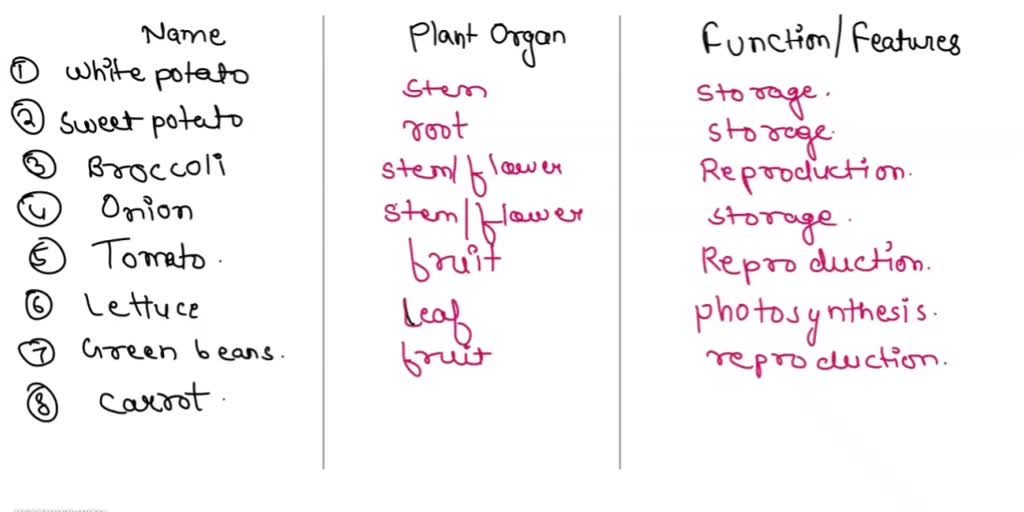 Name Plant Organ Function/Features
① White potato stem storage.
② Sweet potato root storage.
③ Broccoli stem/flower Reproduction.
④ Onion stem/flower storage.
⑤ Tomato. fruit Reproduction.
⑥ Lettuce leaf photosynthesis.
⑦ Green beans. fruit reproduction.
⑧ Carrot.